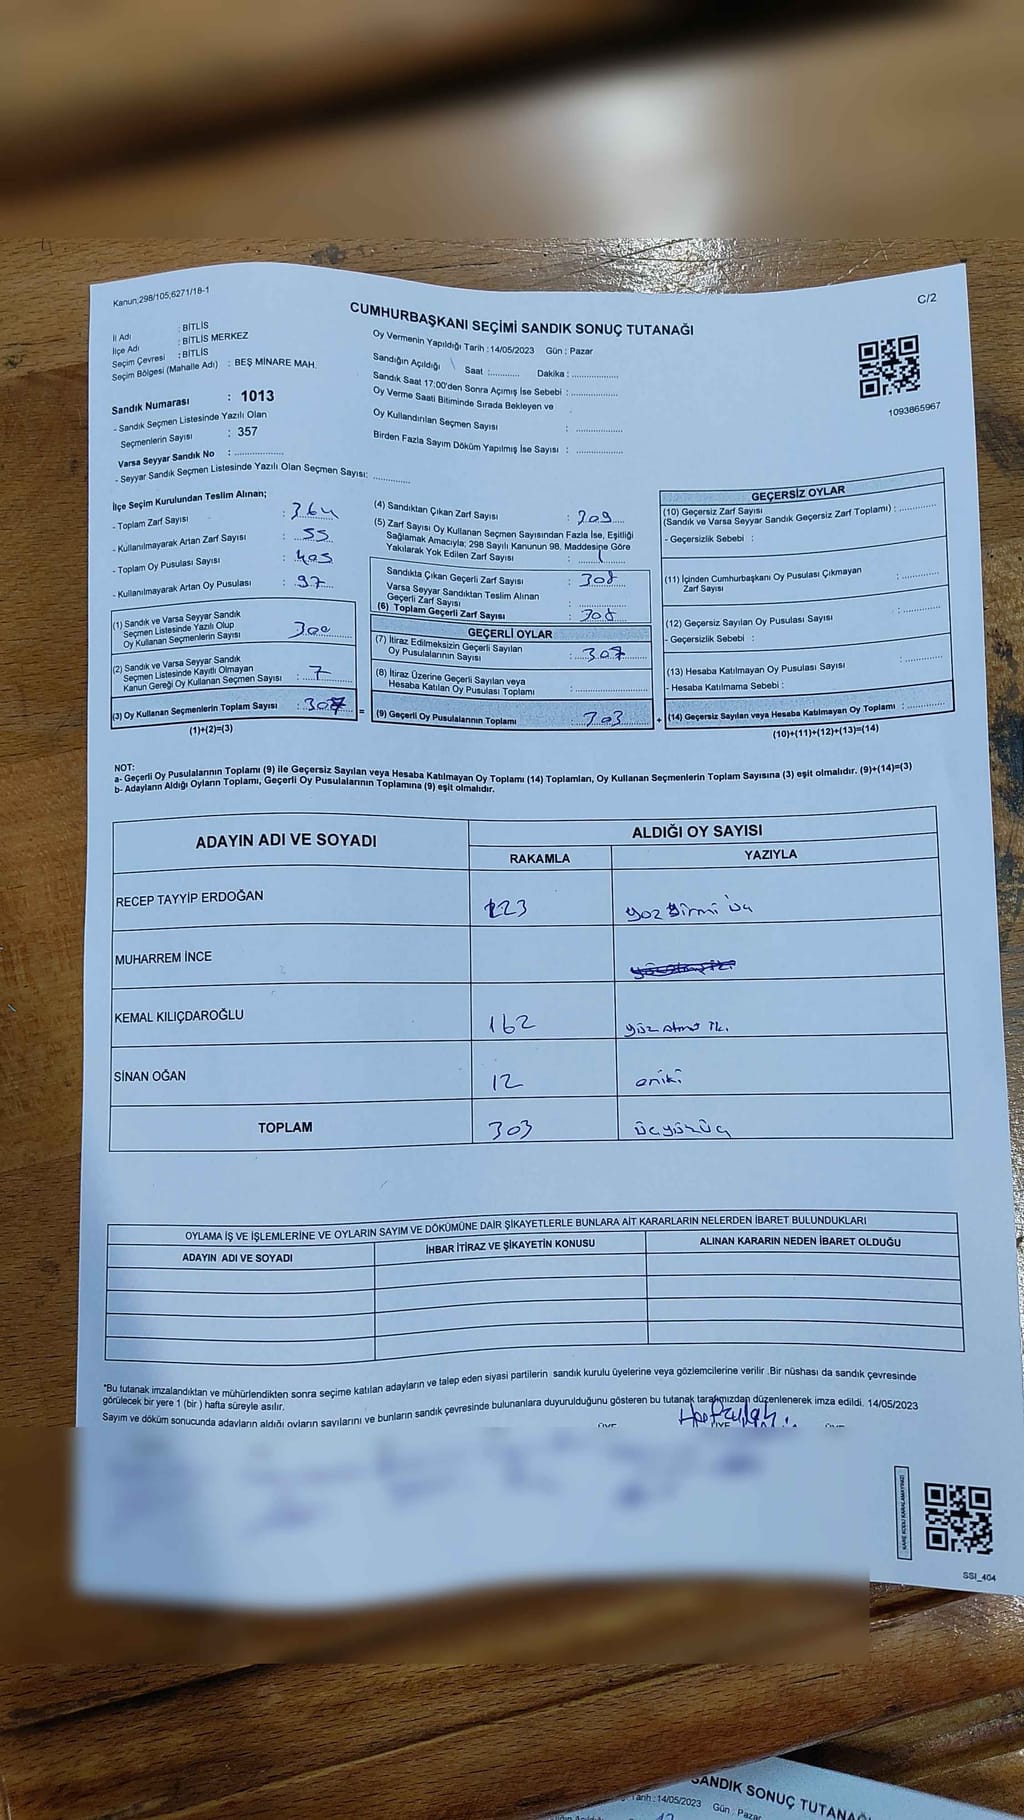 Kanun,298/105,6271/18-1
C/2
CUMHURBAŞKANI SEÇİMİ SANDIK SONUÇ TUTANAĞI
İl Adı : BİTLİS
İlçe Adı : BİTLİS MERKEZ
Seçim Çevresi : BİTLİS
Seçim Bölgesi (Mahalle Adı) : BEŞ MİNARE MAH.
Oy Vermenin Yapıldığı Tarih : 14/05/2023 Gün : Pazar
Sandığın Açıldığı Saat :........... Dakika :................
Sandık Saat 17:00'den Sonra Açımış İse Sebebi :................
Oy Verme Saati Bitiminde Sırada Bekleyen ve
Oy Kullandırılan Seçmen Sayısı : ................
Birden Fazla Sayım Döküm Yapılmış İse Sayısı : ................
1093865967
Sandık Numarası : 1013
- Sandık Seçmen Listesinde Yazılı Olan
Seçmenlerin Sayısı : 357
Varsa Seyyar Sandık No : ................
- Seyyar Sandık Seçmen Listesinde Yazılı Olan Seçmen Sayısı: ............
İlçe Seçim Kurulundan Teslim Alınan;
- Toplam Zarf Sayısı : 364
- Kullanılmayarak Artan Zarf Sayısı : 55
- Toplam Oy Pusulası Sayısı : 405
- Kullanılmayarak Artan Oy Pusulası : 97
(1) Sandık ve Varsa Seyyar Sandık
Seçmen Listesinde Yazılı Olup
Oy Kullanan Seçmenlerin Sayısı 300
(2) Sandık ve Varsa Seyyar Sandık
Seçmen Listesinde Kayıtlı Olmayan
Kanun Gereği Oy Kullanan Seçmen Sayısı : 7
(3) Oy Kullanan Seçmenlerin Toplam Sayısı : 307
(1)+(2)=(3)
(4) Sandıktan Çıkan Zarf Sayısı : 309
(5) Zarf Sayısı Oy Kullanan Seçmen Sayısından Fazla İse, Eşitliği
Sağlamak Amacıyla; 298 Sayılı Kanunun 98. Maddesine Göre
Yakılarak Yok Edilen Zarf Sayısı : 1
Sandıkta Çıkan Geçerli Zarf Sayısı : 308
Varsa Seyyar Sandıktan Teslim Alınan
Geçerli Zarf Sayısı : ................
(6) Toplam Geçerli Zarf Sayısı : 308
GEÇERLİ OYLAR
(7) İtiraz Edilmeksizin Geçerli Sayılan
Oy Pusulalarının Sayısı : 307
(8) İtiraz Üzerine Geçerli Sayılan veya
Hesaba Katılan Oy Pusulası Toplamı : ................
= (9) Geçerli Oy Pusulalarının Toplamı : 303
GEÇERSİZ OYLAR
(10) Geçersiz Zarf Sayısı
(Sandık ve Varsa Seyyar Sandık Geçersiz Zarf Toplamı) : ............
- Geçersizlik Sebebi :
(11) İçinden Cumhurbaşkanı Oy Pusulası Çıkmayan
Zarf Sayısı : ............
(12) Geçersiz Sayılan Oy Pusulası Sayısı : ............
- Geçersizlik Sebebi :
(13) Hesaba Katılmayan Oy Pusulası Sayısı : ............
- Hesaba Katılmama Sebebi :
+ (14) Geçersiz Sayılan veya Hesaba Katılmayan Oy Toplamı : ............
(10)+(11)+(12)+(13)=(14)
NOT:
a- Geçerli Oy Pusulalarının Toplamı (9) ile Geçersiz Sayılan veya Hesaba Katılmayan Oy Toplamı (14) Toplamları, Oy Kullanan Seçmenlerin Toplam Sayısına (3) eşit olmalıdır. (9)+(14)=(3)
b- Adayların Aldığı Oyların Toplamı, Geçerli Oy Pusulalarının Toplamına (9) eşit olmalıdır.
ADAYIN ADI VE SOYADI
ALDIĞI OY SAYISI
RAKAMLA YAZIYLA
RECEP TAYYİP ERDOĞAN 123 yüz yirmi üç
MUHARREM İNCE
KEMAL KILIÇDAROĞLU 162 yüz atmış iki
SİNAN OĞAN 12 oniki
TOPLAM 303 üçyüzüç
OYLAMA İŞ VE İŞLEMLERİNE VE OYLARIN SAYIM VE DÖKÜMÜNE DAİR ŞİKAYETLERLE BUNLARA AİT KARARLARIN NELERDEN İBARET BULUNDUKLARI
ADAYIN ADI VE SOYADI İHBAR İTİRAZ VE ŞİKAYETİN KONUSU ALINAN KARARIN NEDEN İBARET OLDUĞU
*Bu tutanak imzalandıktan ve mühürlendikten sonra seçime katılan adayların ve talep eden siyasi partilerin sandık kurulu üyelerine veya gözlemcilerine verilir .Bir nüshası da sandık çevresinde
görülecek bir yere 1 (bir ) hafta süreyle asılır.
Sayım ve döküm sonucunda adayların aldığı oyların sayılarını ve bunların sandık çevresinde bulunanlara duyurulduğunu gösteren bu tutanak tarafımızdan düzenlenerek imza edildi. 14/05/2023
ÜYE ÜYE ÜYE
KARE KODU KARALAMAYINIZ!
SSI_404
SANDIK SONUÇ TUTANAĞI
Tarih :14/05/2023 Gün : Pazar